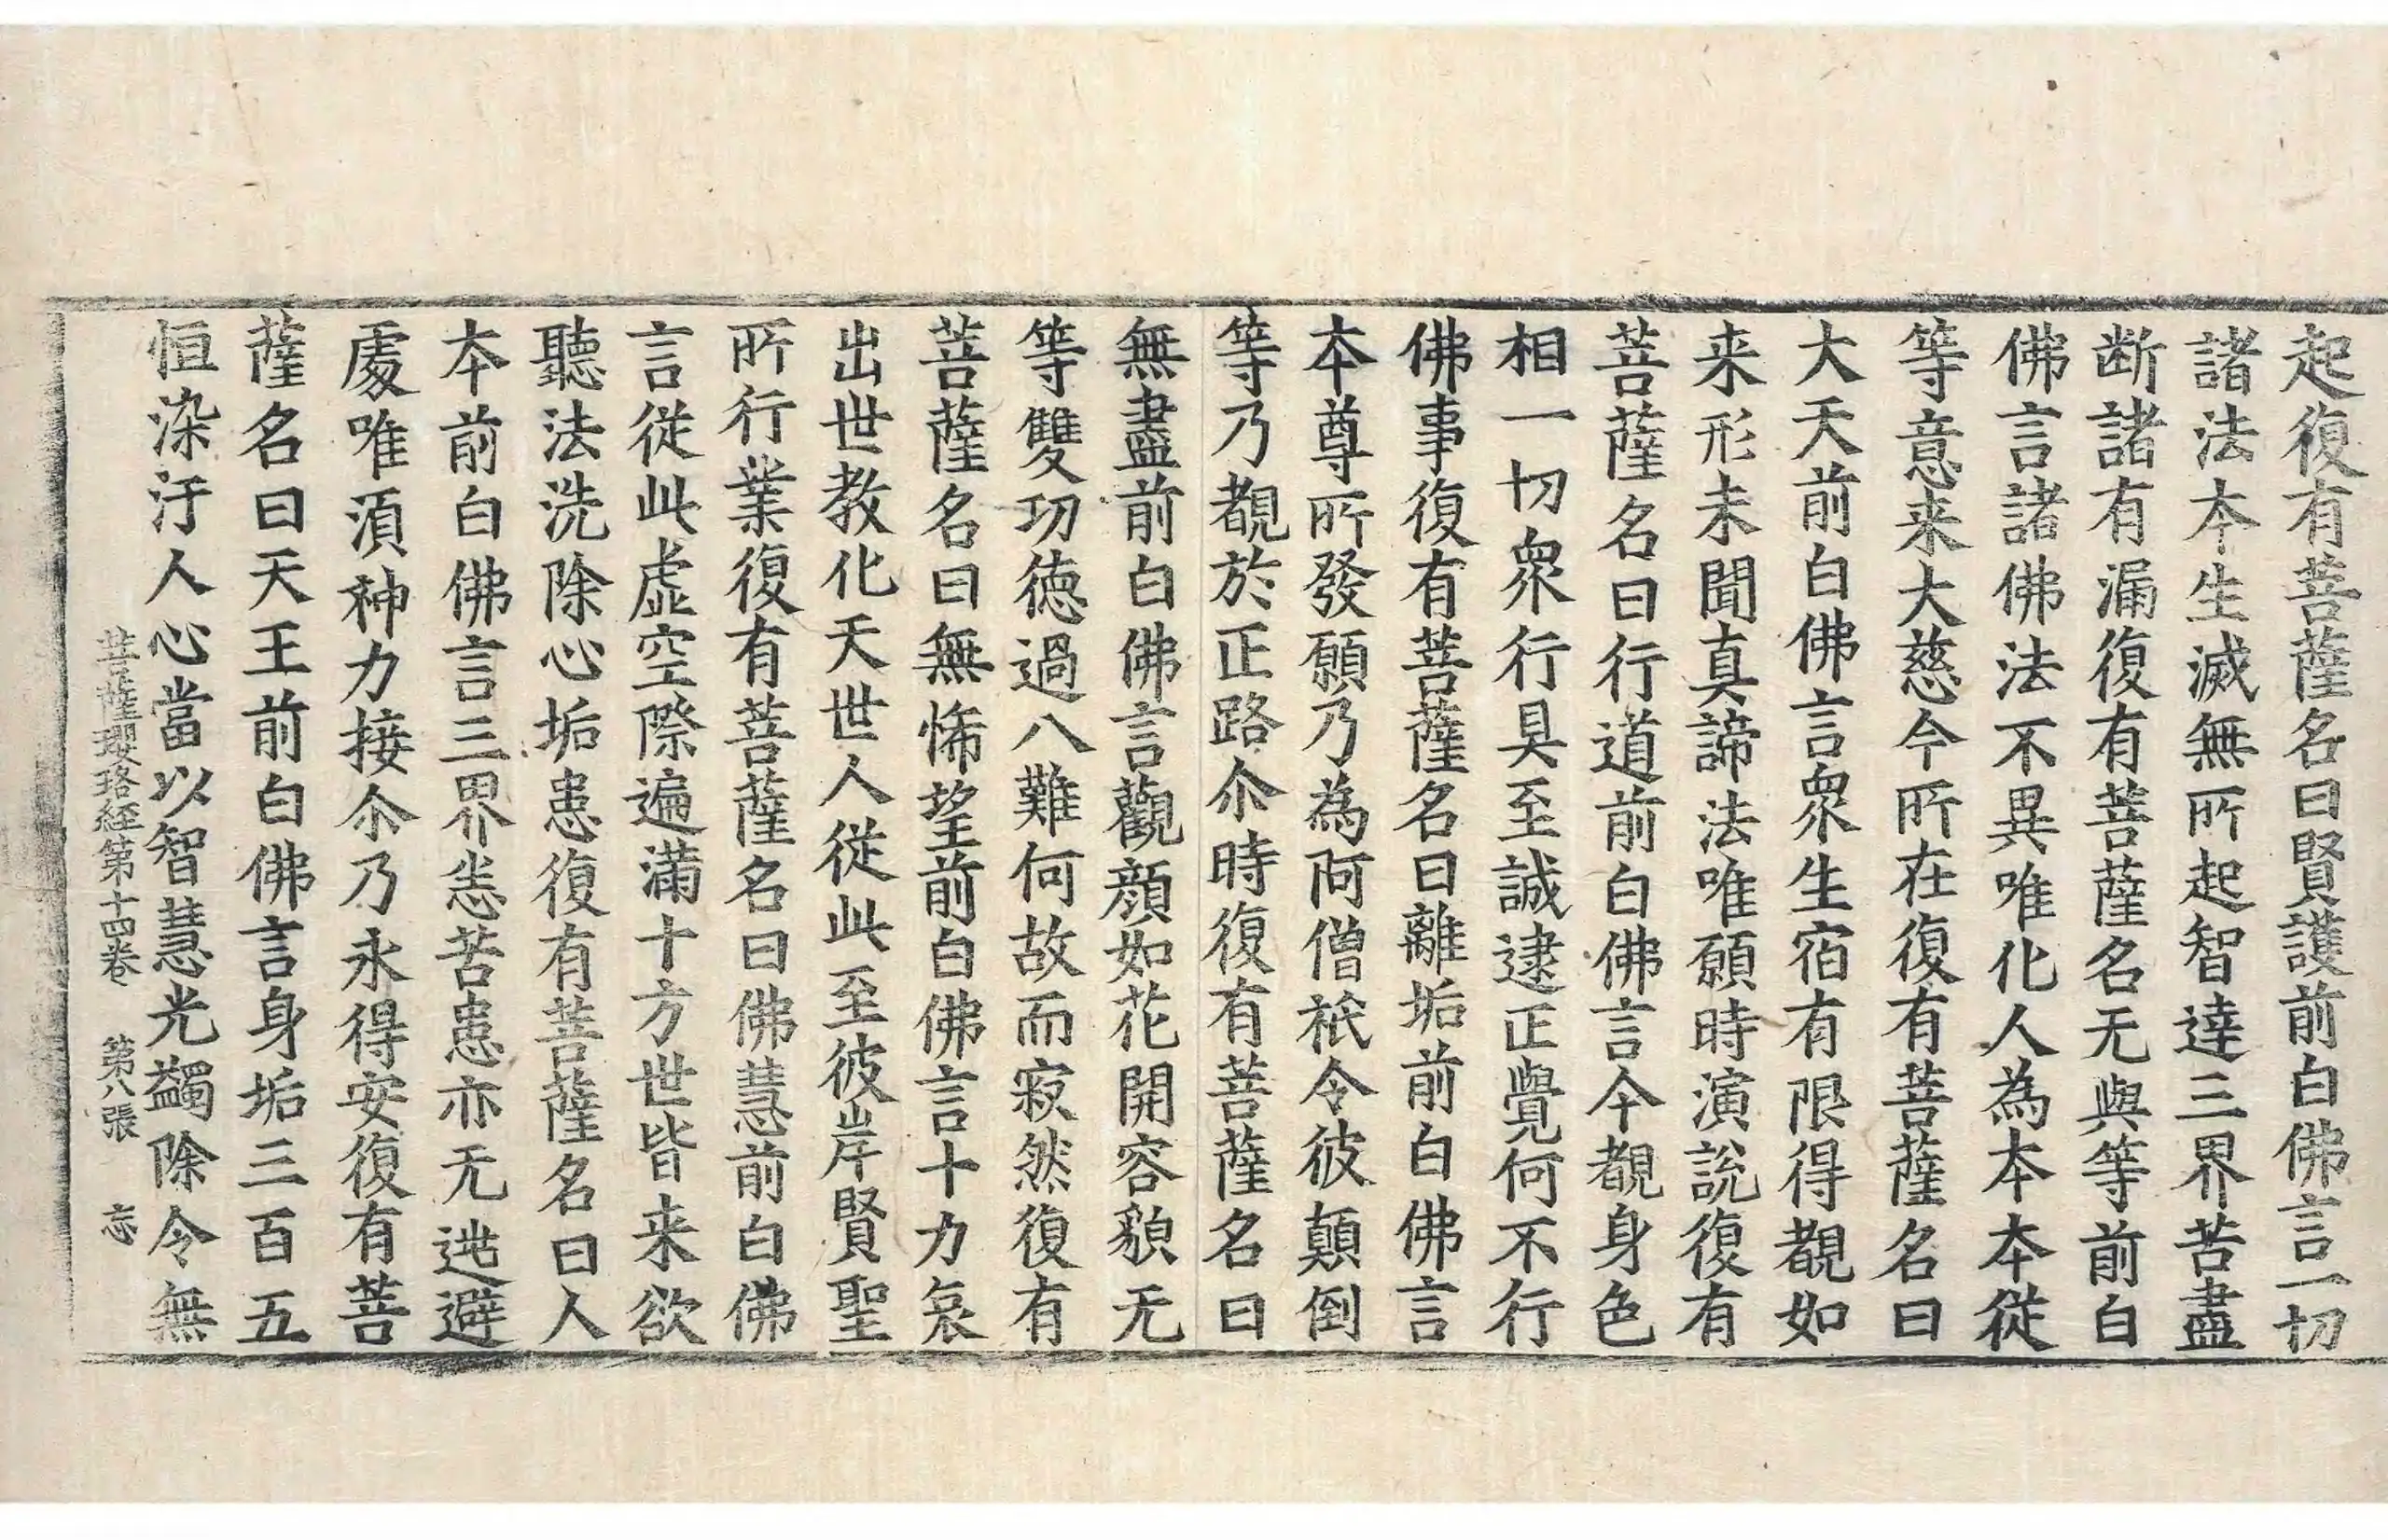 起復有菩薩名曰賢護前白佛言一切
諸法本生滅無所起智達三界苦盡
断諸有漏復有菩薩名无與等前白
佛言諸佛法不異唯化人為本本從
等意来大慈今所在復有菩薩名曰
大天前白佛言衆生宿有限得覩如
来形未聞真諦法唯願時演說復有
菩薩名曰行道前白佛言今覩身色
相一切衆行具至誠逮正覺何不行
佛事復有菩薩名曰離垢前白佛言
本尊所發願乃為阿僧祇令彼顛倒
等乃覩於正路尒時復有菩薩名曰
無盡前白佛言觀顏如花開容貌无
等雙功德過八難何故而寂然復有
菩薩名曰無悕望前白佛言十力哀
出世教化天世人從此至彼岸賢聖
所行業復有菩薩名曰佛慧前白佛
言從此虛空際遍滿十方世皆来欲
聽法洗除心垢患復有菩薩名曰人
本前白佛言三界恙苦患亦无逃避
處唯湏神力接尒乃永得安復有菩
薩名曰天王前白佛言身垢三百五
恒染汙人心當以智慧光蠲除令無
菩薩瓔珞經第十四卷 第八張 忘